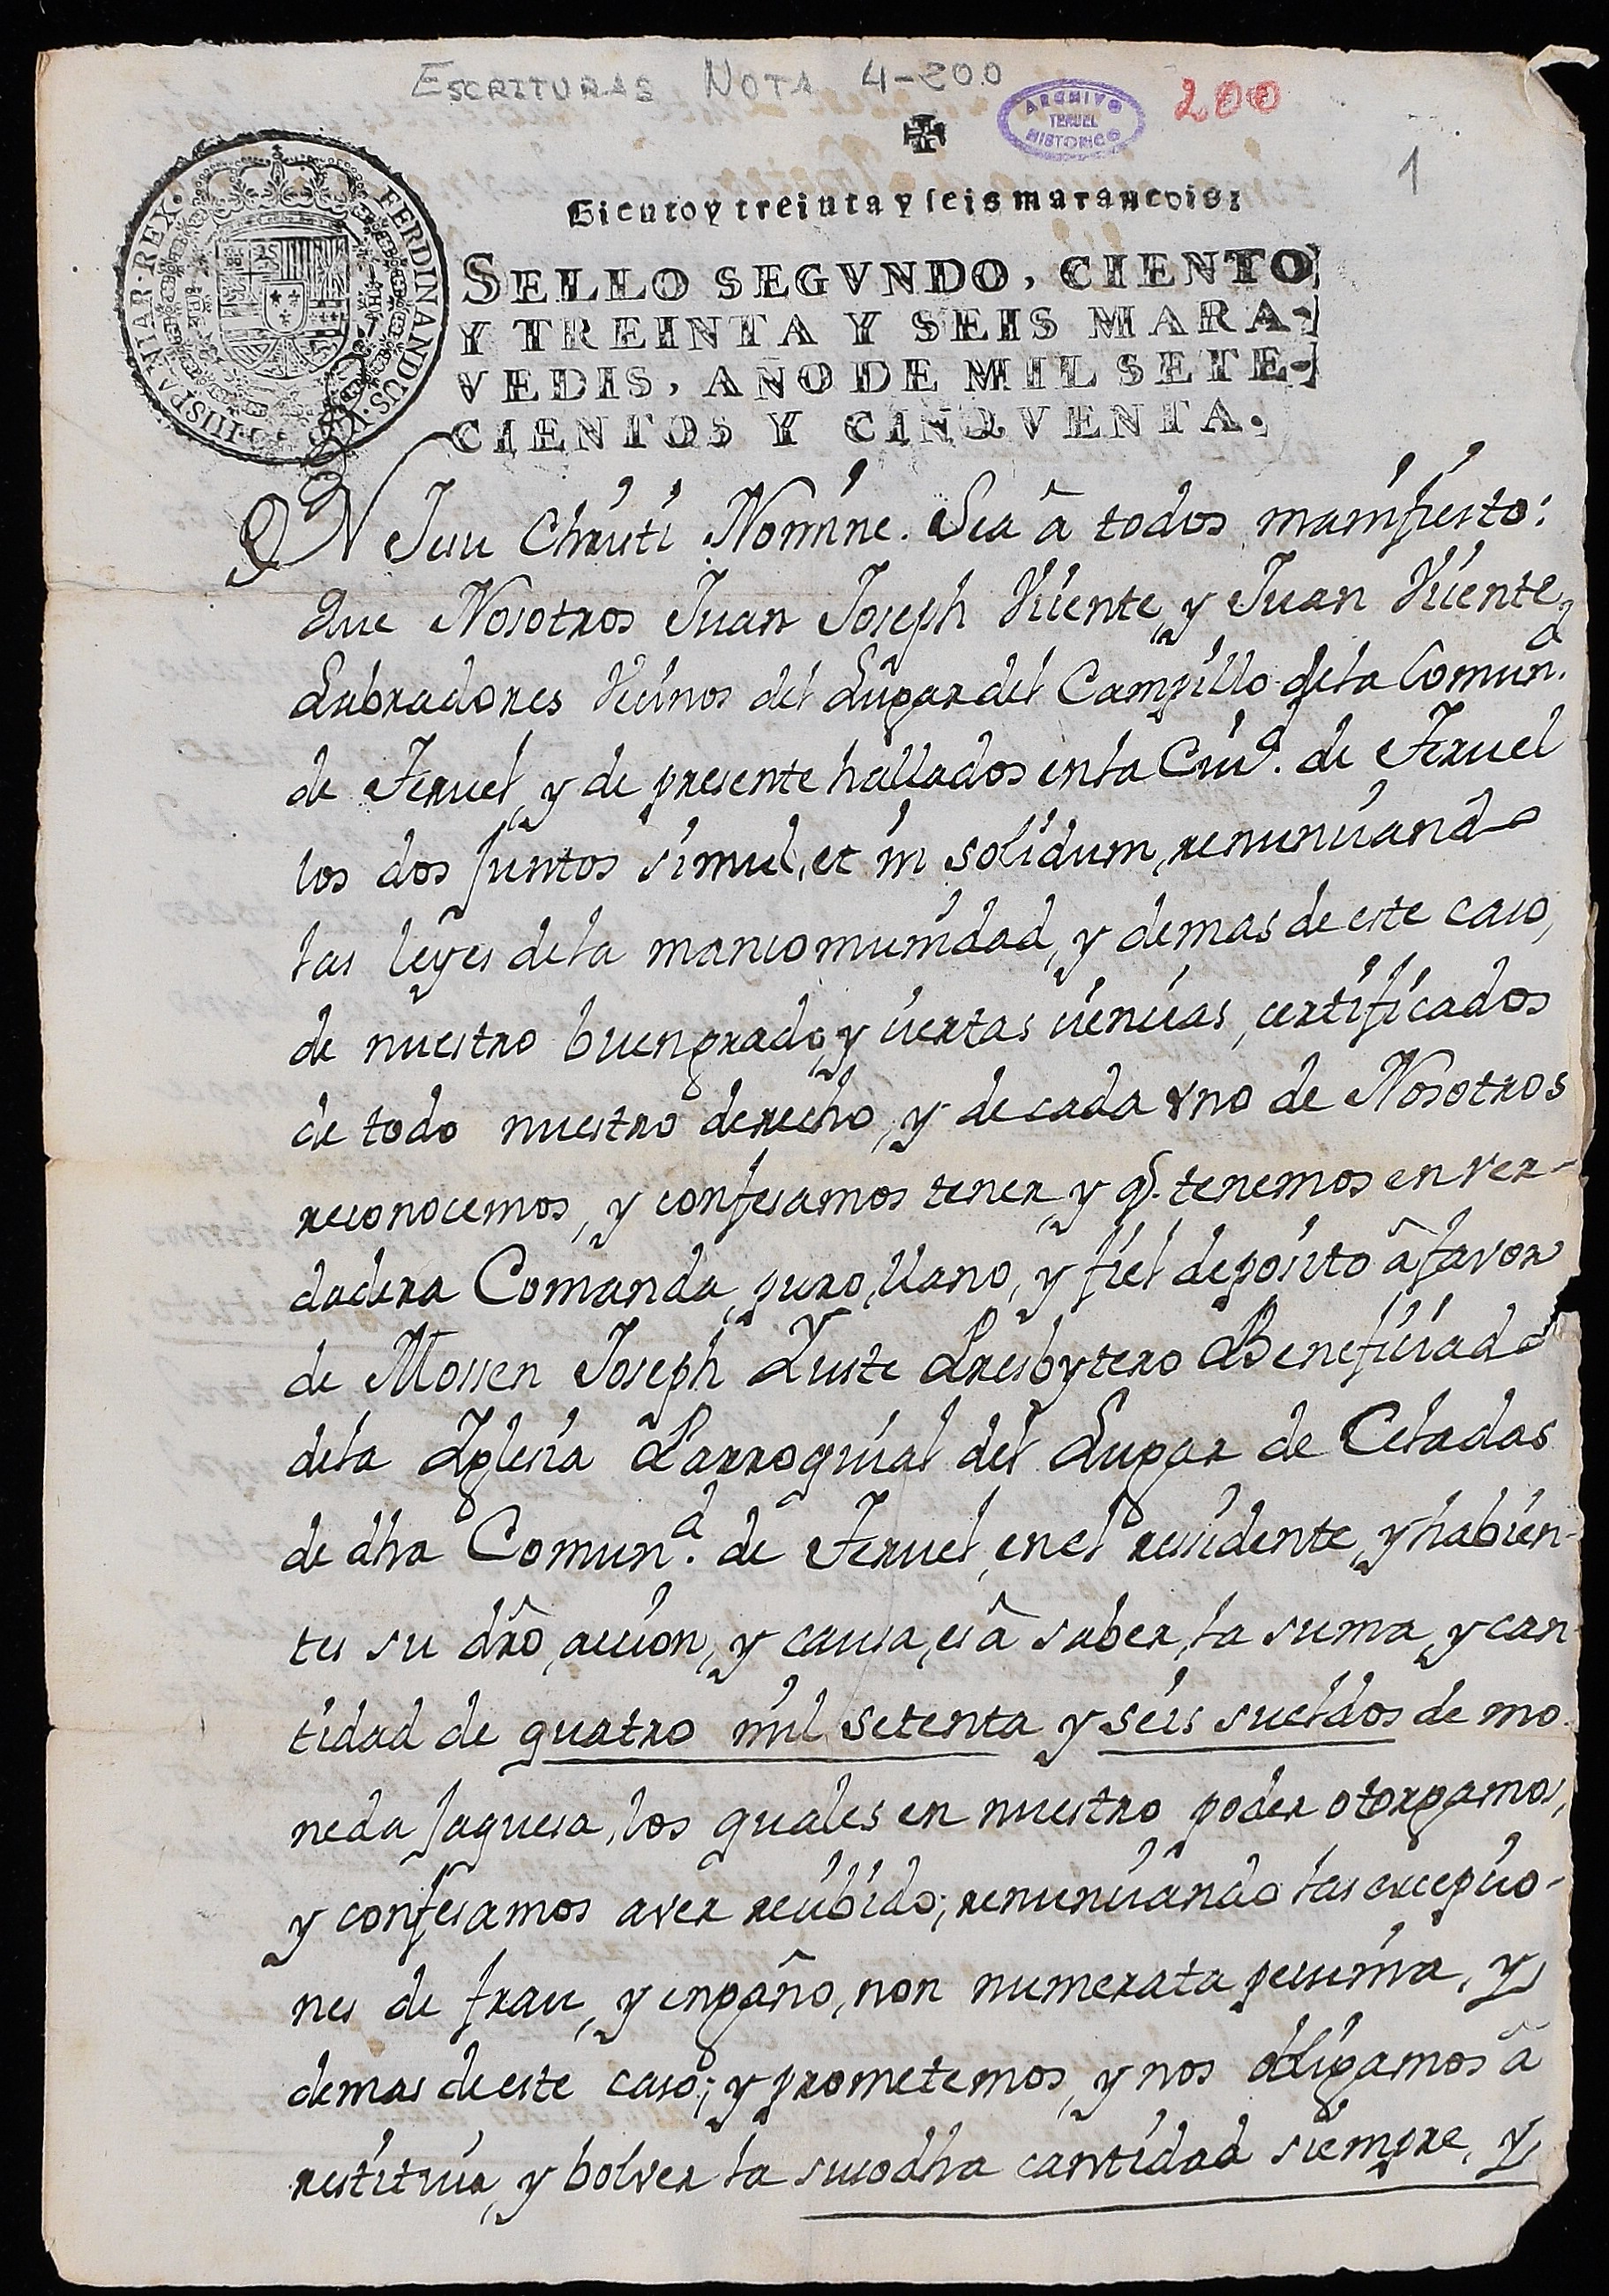 ESCRITURAS NOTA 4-200
ARCHIVO TERUEL HISTORICO
200
1
FERDINANDUS·VI·D·G·HISPANIAR·REX·
Cientoy treinta y seis maravedis:
SELLO SEGVNDO, CIENTO
Y TREINTA Y SEIS MARA-
VEDIS, AÑO DE MIL SETE-
CIENTOS Y CINQVENTA.
IN Jesu Christi Nomine. Sea â todos manifiesto:
Que Nosotros Juan Joseph Vicente, y Juan Vicente,
Labradores Vecinos del Lugar del Campillo dela Comun.d
de Teruel, y de presente hallados enla Ciud.d de Teruel
los dos juntos simul, et in solidum, renunciando
las leyes dela mancomunidad, y demas de este caso,
de nuestro buengrado, y ciertas ciencias, certificados
de todo nuestro derecho, y de cada vno de Nosotros
reconocemos, y confesamos tener, y q.e tenemos en ver-
dadera Comanda, puro, llano, y fiel deposito â favor
de Mossen Joseph Yuste Presbytero Beneficiado
dela Iglesia Parroquial del Lugar de Celadas
de dha Comun.d de Teruel, enel residente, y habien-
tes su dr̃o, accion, y causa, es â saber, la suma, y can-
tidad de quatro mil setenta y seis sueldos de mo-
neda Jaquesa, los quales en nuestro poder otorgamos,
y confesamos aver recibido; renunciando las excepcio-
nes de frau, y engaño, non numerata pecunia, y
demas de este caso; y prometemos, y nos obligamos â
restituir, y bolver la susodha cantidad siempre, y